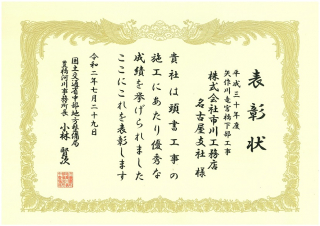 表彰状
平成三十年度
矢作川竜宮橋下部工事
株式会社市川工務店
名古屋支社 様
貴社は頭書工事の
施工にあたり優秀な
成績を挙げられました
ここにこれを表彰します
令和二年七月二十九日
国土交通省中部地方整備局
豊橋河川事務所長 小林 賢次